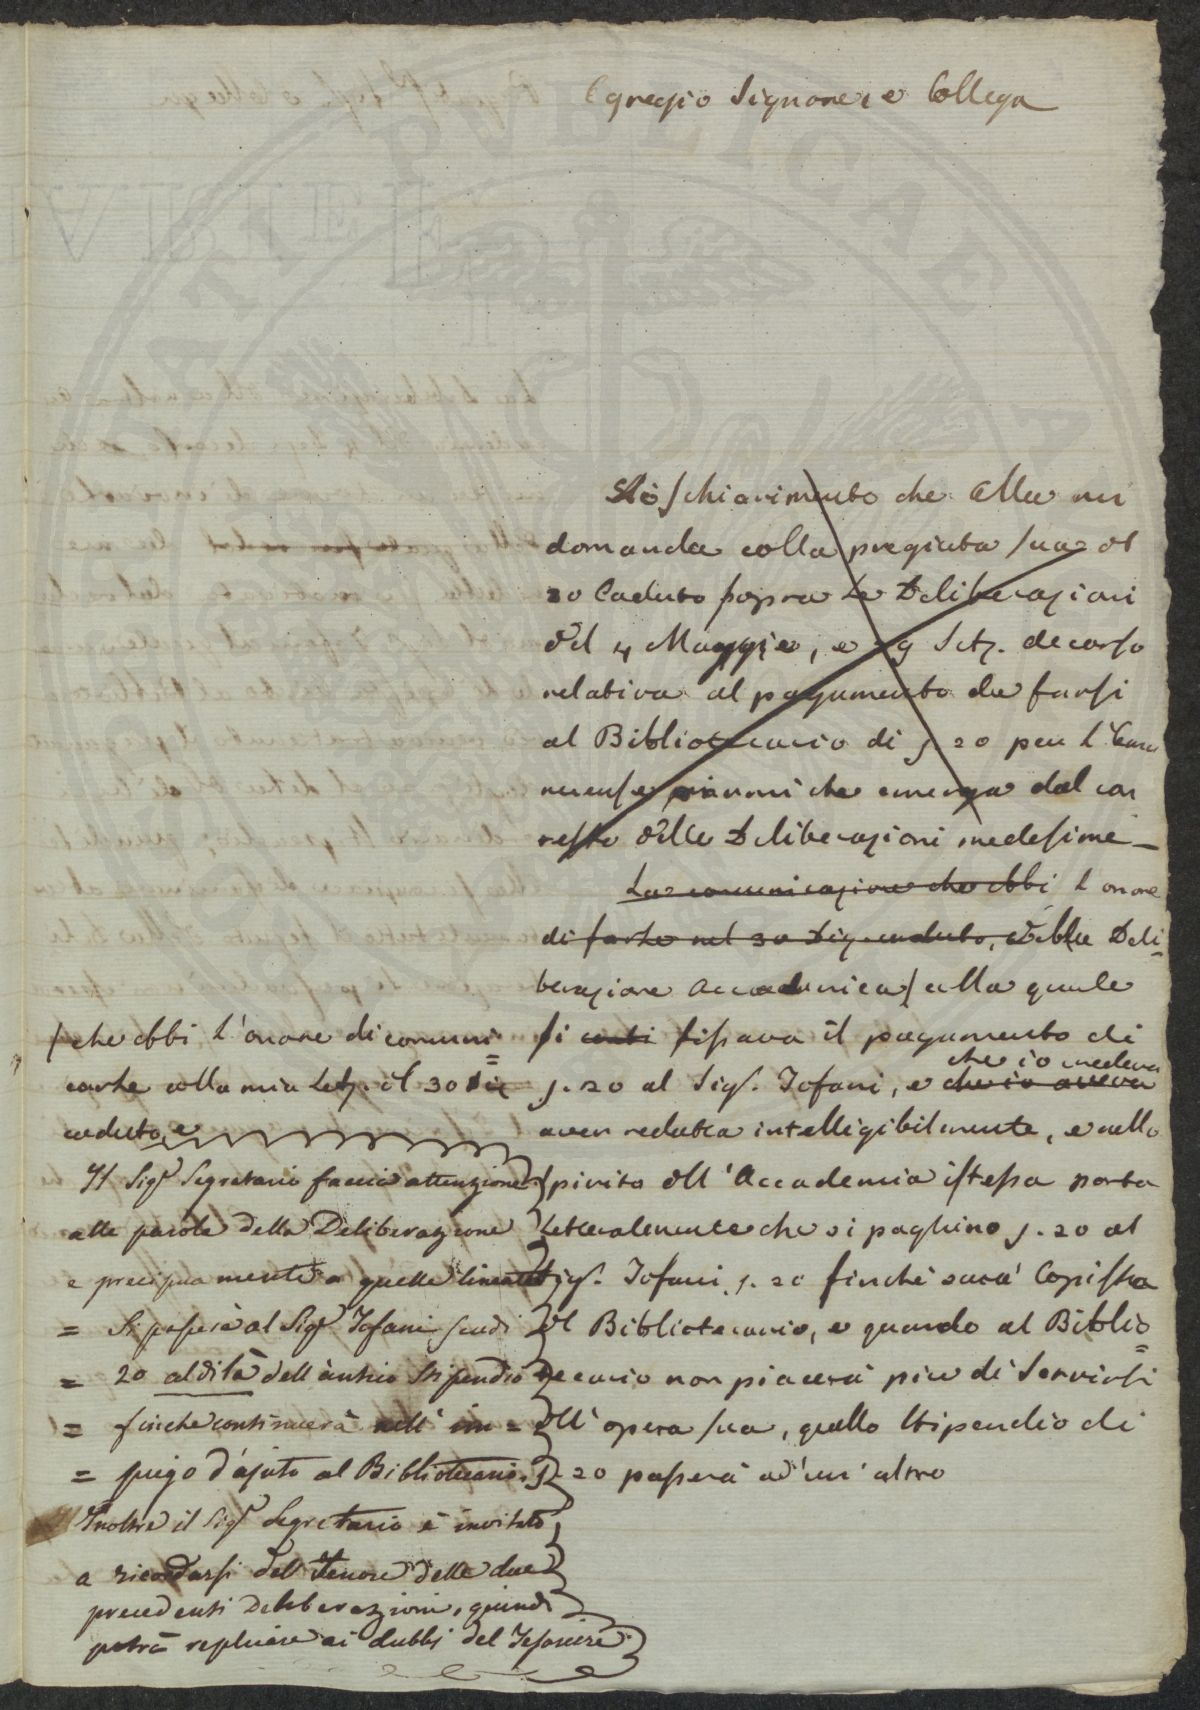 Egregio Signore, e Collega
Lo schiarimento che Ella mi
domanda colla pregiata sua del
20 Caduto sopra le Deliberazioni
del 4 Maggio, e 29 Sett. decorso
relativa al pagamento da farsi
al Bibliotecario di s. 20 per l'
parmi che emerga dal con
testo delle Deliberazioni medesime —
La comunicazione che ebbi l'onore
di farle nel 30 caduto, della Deli=
berazione Accademica / colla quale
si fissava il pagamento di
che io medeva
s. 20 al Sigr. Tofani, e che io aveva
aver redatta intelligibilmente, e nello
spirito dell'Accademia istessa porta
Letteralmente che si paghino s. 20 al
Sigr. Tofani s. 20 finchè sarà Copista
del Bibliotecario, e quando al Biblio=
tecario non piacerà più di servirsi
dell'opera sua, quello stipendio di
s. 20 passerà ad un' altro
/ che ebbi l'onore di comuni=
carle colla mia del 30
caduto, e
Il Sigr Segretario faccia attenzione
alle parole della Deliberazione
e precipuamente a quelle lineate
= Si passerà al Sigr Tofani scudi
= 20 al di là dell'antico stipendio
= finche continuerà nell' im=
= piego d'ajuto al Bibliotecario.
Inoltre il Sigr Segretario è invitato
a ricordarsi del tenore delle due
precedenti Deliberazioni, quindi
potrà replicare ai dubbi del Tesoriere.
PUBLICAE